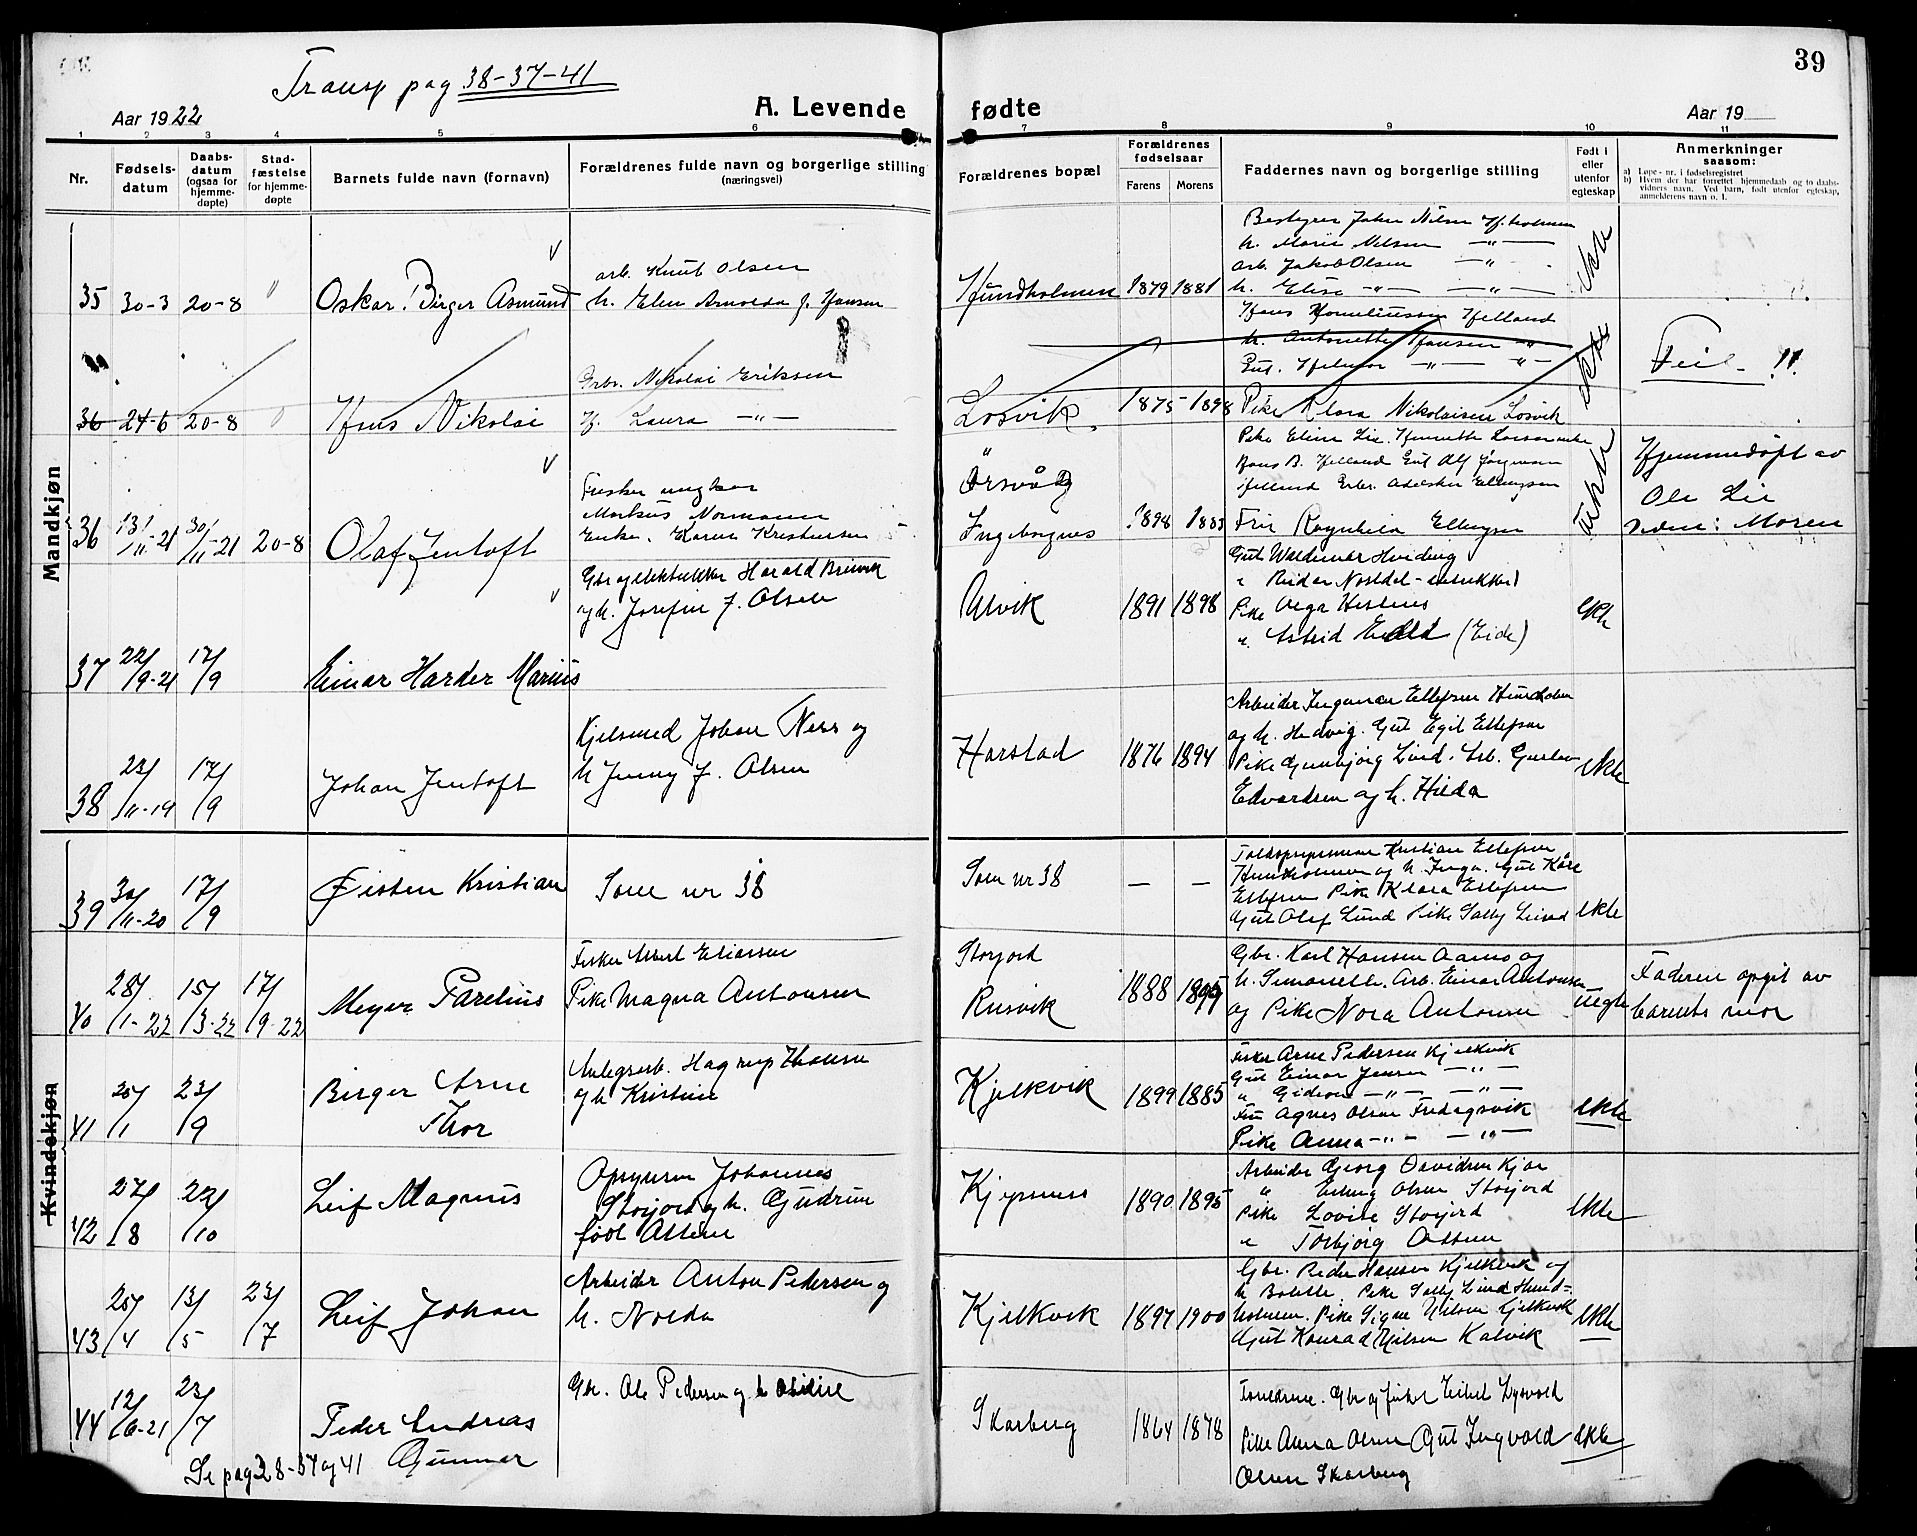 Transp pag 38-37-41
39
Aar 1922
A. Levende fødte
Aar 19
1 2 3 4 5 6 7 8 9 10 11
Nr.
Fødsels-datum
Daabs-datum (ogsaa for hjemme-døpte)
Stad-fæstelse for hjemme-døpte
Barnets fulde navn (fornavn)
Forældrenes fulde navn og borgerlige stilling (næringsvei)
Forældrenes bopæl
Forældrenes fødselsaar
Farens Morens
Faddernes navn og borgerlige stilling
Født i eller utenfor egteskap
Anmerkninger saasom:
a) Løpe-nr. i fødselsregistret
b) Hvem der har forrettet hjemmedaab og to daabs-vidners navn. Ved barn, født utenfor egteskap, anmelderens navn o. l.
Mandkjøn
35 30-3 20-8 " Oskar Birger Asmund
arb. Knut Olsen
h. Elen Arnolda f. Hansen
Hundholmen 1879 1881
Bestyrer Johan Nilsen Hundholmen
h. Marie Nilsen —"—
arb. Jakob Olsen —"—
h. Elise —"— —"—
ekte
36 24-6 20-8 Hans Nikolai
Grbr. Nikolai Eriksen
H. Laura —"—
Losvik 1875 1898
Hans Korneliussen Hjelland
h. Antonette Hansen —"—
Gut. Hjelmar —"— —"—
Pike Klara Nikolaisen Losvik
ekte
Feil !!
36 13/11-21 30/11-21 20-8 Olaf Jentoft
Fisker ungkar
Markus Normann
Enke. Karen Kristensen
Ørsvåg
Ingeborgnes 1898 1883
Pike Eline Lie. Henrette Larsen enke
Hans B. Hjelland Gut Alf Jørgensen
Hjelland Grbr. Adelsten Ellingsen
Fru Ragnhila Ellingsen
Hjemmedøpt av
Ole Lie
viden: Moren
37 22/9-21 17/9 Einar Harder Marius
Gbr og elektrikker Harald Breivik
og h. Josefine f. Olsen
Ulvik 1891 1898
Gut Waldemar Hveding
" Reidar Nosldel - elektrikker)
Pike Olga Hestnes
" Astrid Eidd (Eide)
ekte
38 23/11-19 17/9 Johan Jentoft
Kjelsmed Johan Ness og
h Jenny f. Olsen
Harstad 1876 1894
Arbeider Ingemar Ellefsen Hundholm
og h. Hedvig. Gut Egil Ellefsen
Pike Gunbjörg Lind. Arb. Gustav
Edvardsen og h. Hilda
ekte
39 30/11-20 17/9 Øisten Kristian
Som nr 38
Som nr 38 — —
Toldopsynsmann Kristian Ellefsen
Hundholmen og h. Inga. Gut Kåre
Ellefsen Pike Klara Ellefsen
Gut Olaf Lund Pike Sally Lind
ekte
40 28/1-22 15/3-22 17/9-22 Meyer Parelius
Fisker Albert Eliassen
Pike Magna Antonsen
Storjord
Rusvik 1888 1899
Gbr. Karl Hansen Aamo og
h. Simonette. Arb. Einar Antonsen
og Pike Nora Antonsen
uegte
Faderen opgit av
barnets mor
Kvindekjøn
41 25/1 23/9 Birger Arne
Thor
Anlegsarb. Hagrup Hansen
og h Kristine
Kjelkvik 1899 1885
Fisker Arne Pedersen Kjelkvik
Gut Einar Jensen —"—
" Gideon —"— —"—
Fru Agnes Olsen Fredagsvik
Pike Anna —"— —"—
ekte
42 27/8 22/10 Leif Magnus
Opsynsm Johannes
Storjord og h. Gudrun
født Assem
Kjepsness 1890 1895
Arbeider Georg Davidsen Kjør
" Erling Olsen Storjord
Pike Lovise Storjord
" Torbjörg Assem
ekte
43 25/4 13/5 23/7 Leif Johan
Arbeider Anton Pedersen og
h. Nolda
Kjelkvik 1897 1900
Gbr. Peder Hansen Kjelkvik og
h Bolette. Pike Sally Lind Hund-
holmen. Pike Signe Nilsen Kjelkvik
Gut Konrad Nilsen Kalvik
ekte
44 12/6-21 23/7 Peder Andreas
Gunnar
Gbr. Ole Pedersen og h
Skarberg 1864 1878
Forældrene. Gbr og fisker Eilert Lysvold
Pike Anna Olsen Gut Ingvald
Olsen Skarberg
ekte
Se pag 38-37 og 41